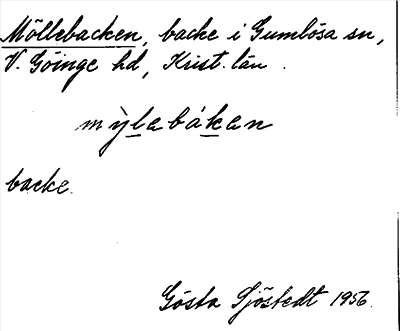 Möllebacken, backe i Gumlösa sn,
V. Göinge hd, Krist. län.
mỳlabákan
backe.
Gösta Sjöstedt 1956.